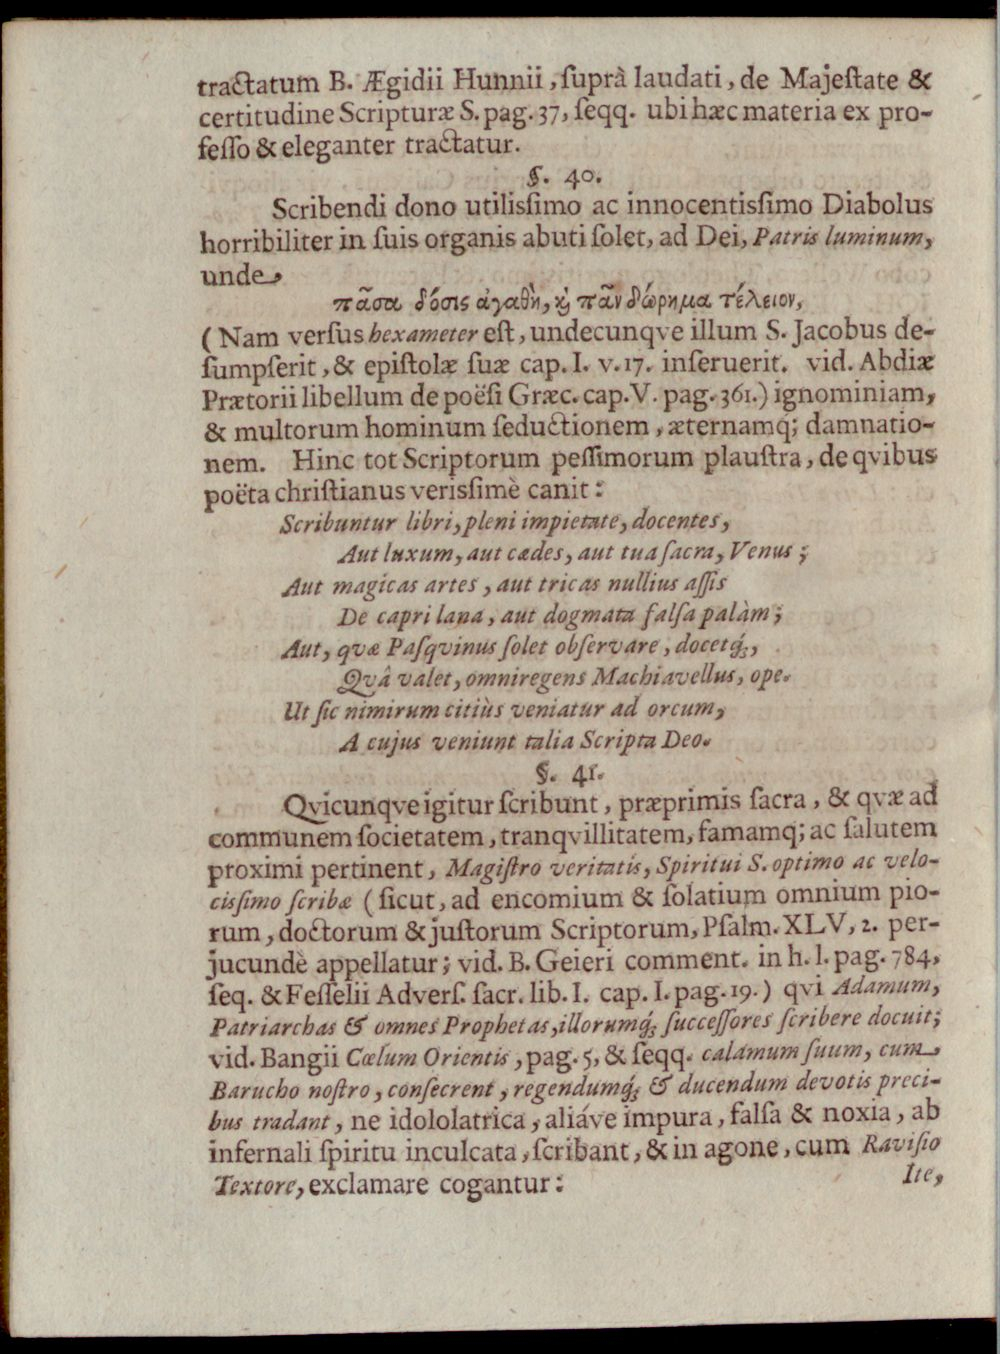 tractatum B. Ægidii Hunnii, ſuprà laudati, de Majeſtate &
certitudine Scripturæ S. pag. 37, ſeqq. ubi hæc materia ex pro-
feſſo & eleganter tractatur.
§. 40.
Scribendi dono utilisſimo ac innocentisſimo Diabolus
horribiliter in ſuis organis abuti ſolet, ad Dei, Patris luminum,
unde
πᾶσα δόσις ἀγαθὴ, ϗ πᾶν δώρημα τέλειον,
(Nam verſus hexameter eſt, undecunqve illum S. Jacobus de-
ſumpſerit, & epiſtolæ ſuæ cap. I. v. 17. inſeruerit. vid. Abdiæ
Prætorii libellum de poëſi Græc. cap. V. pag. 361.) ignominiam,
& multorum hominum ſeductionem, æternamq; damnatio-
nem. Hinc tot Scriptorum pesſimorum plauſtra, de qvibus
poëta chriſtianus verisſimè canit:
Scribuntur libri, pleni impietate, docentes,
Aut luxum, aut cædes, aut tua ſacra, Venus;
Aut magicas artes, aut tricas nullius aſſis
De capri lana, aut dogmata falſa palàm;
Aut, qvæ Paſqvinus ſolet obſervare, docetq́;,
Qvâ valet, omniregens Machiavellus, ope.
Ut ſic nimirum citiùs veniatur ad orcum,
A cujus veniunt talia Scripta Deo.
§. 41.
Qvicunqve igitur ſcribunt, præprimis ſacra, & qvæ ad
communem ſocietatem, tranqvillitatem, famamq; ac ſalutem
proximi pertinent, Magiſtro veritatis, Spiritui S. optimo ac velo-
cisſimo ſcribæ (ſicut, ad encomium & ſolatium omnium pio-
rum, doctorum & juſtorum Scriptorum, Pſalm. XLV, 2. per-
jucundè appellatur; vid. B. Geieri comment. in h. l. pag. 784,
ſeq. & Feſſelii Adverſ. ſacr. lib. I. cap. I. pag. 19.) qvi Adamum,
Patriarchas & omnes Prophetas, illorumq́; ſucceſſores ſcribere docuit;
vid. Bangii Cœlum Orientis, pag. 5, & ſeqq. calamum ſuum, cum
Barucho noſtro, conſecrent, regendumq́; & ducendum devotis preci-
bus tradant, ne idololatrica, aliáve impura, falſa & noxia, ab
infernali ſpiritu inculcata, ſcribant, & in agone, cum Raviſio
Textore, exclamare cogantur:
Ite,